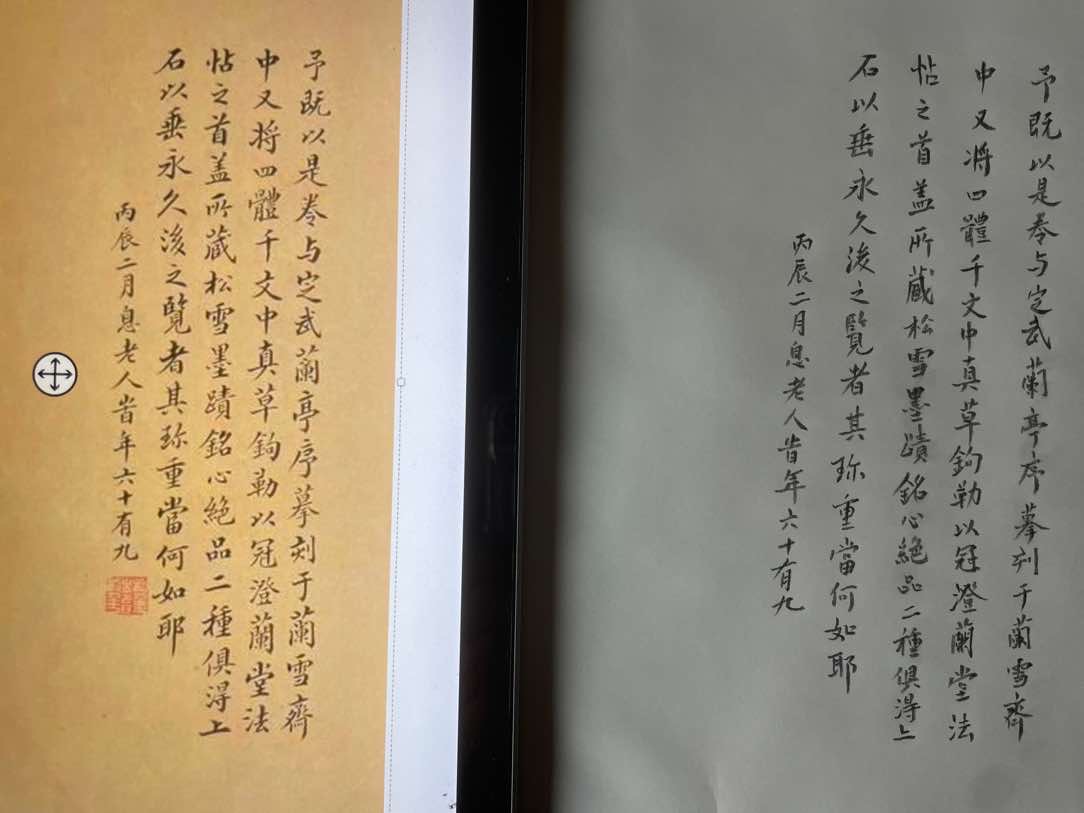 予既以是卷与定武蘭亭序摹刻于蘭雪齋
中又将四體千文中真草鉤勒以冠澄蘭堂法
帖之首盖所藏松雪墨蹟銘心絶品二種俱得上
石以垂永久後之覽者其珎重當何如耶
丙辰二月息老人岀年六十有九
予既以是卷与定武蘭亭序摹刻于蘭雪齋
中又将四體千文中真草鉤勒以冠澄蘭堂法
帖之首盖所藏松雪墨蹟銘心絶品二種俱得上
石以垂永久後之覽者其珎重當何如耶
丙辰二月息老人旹年六十有九